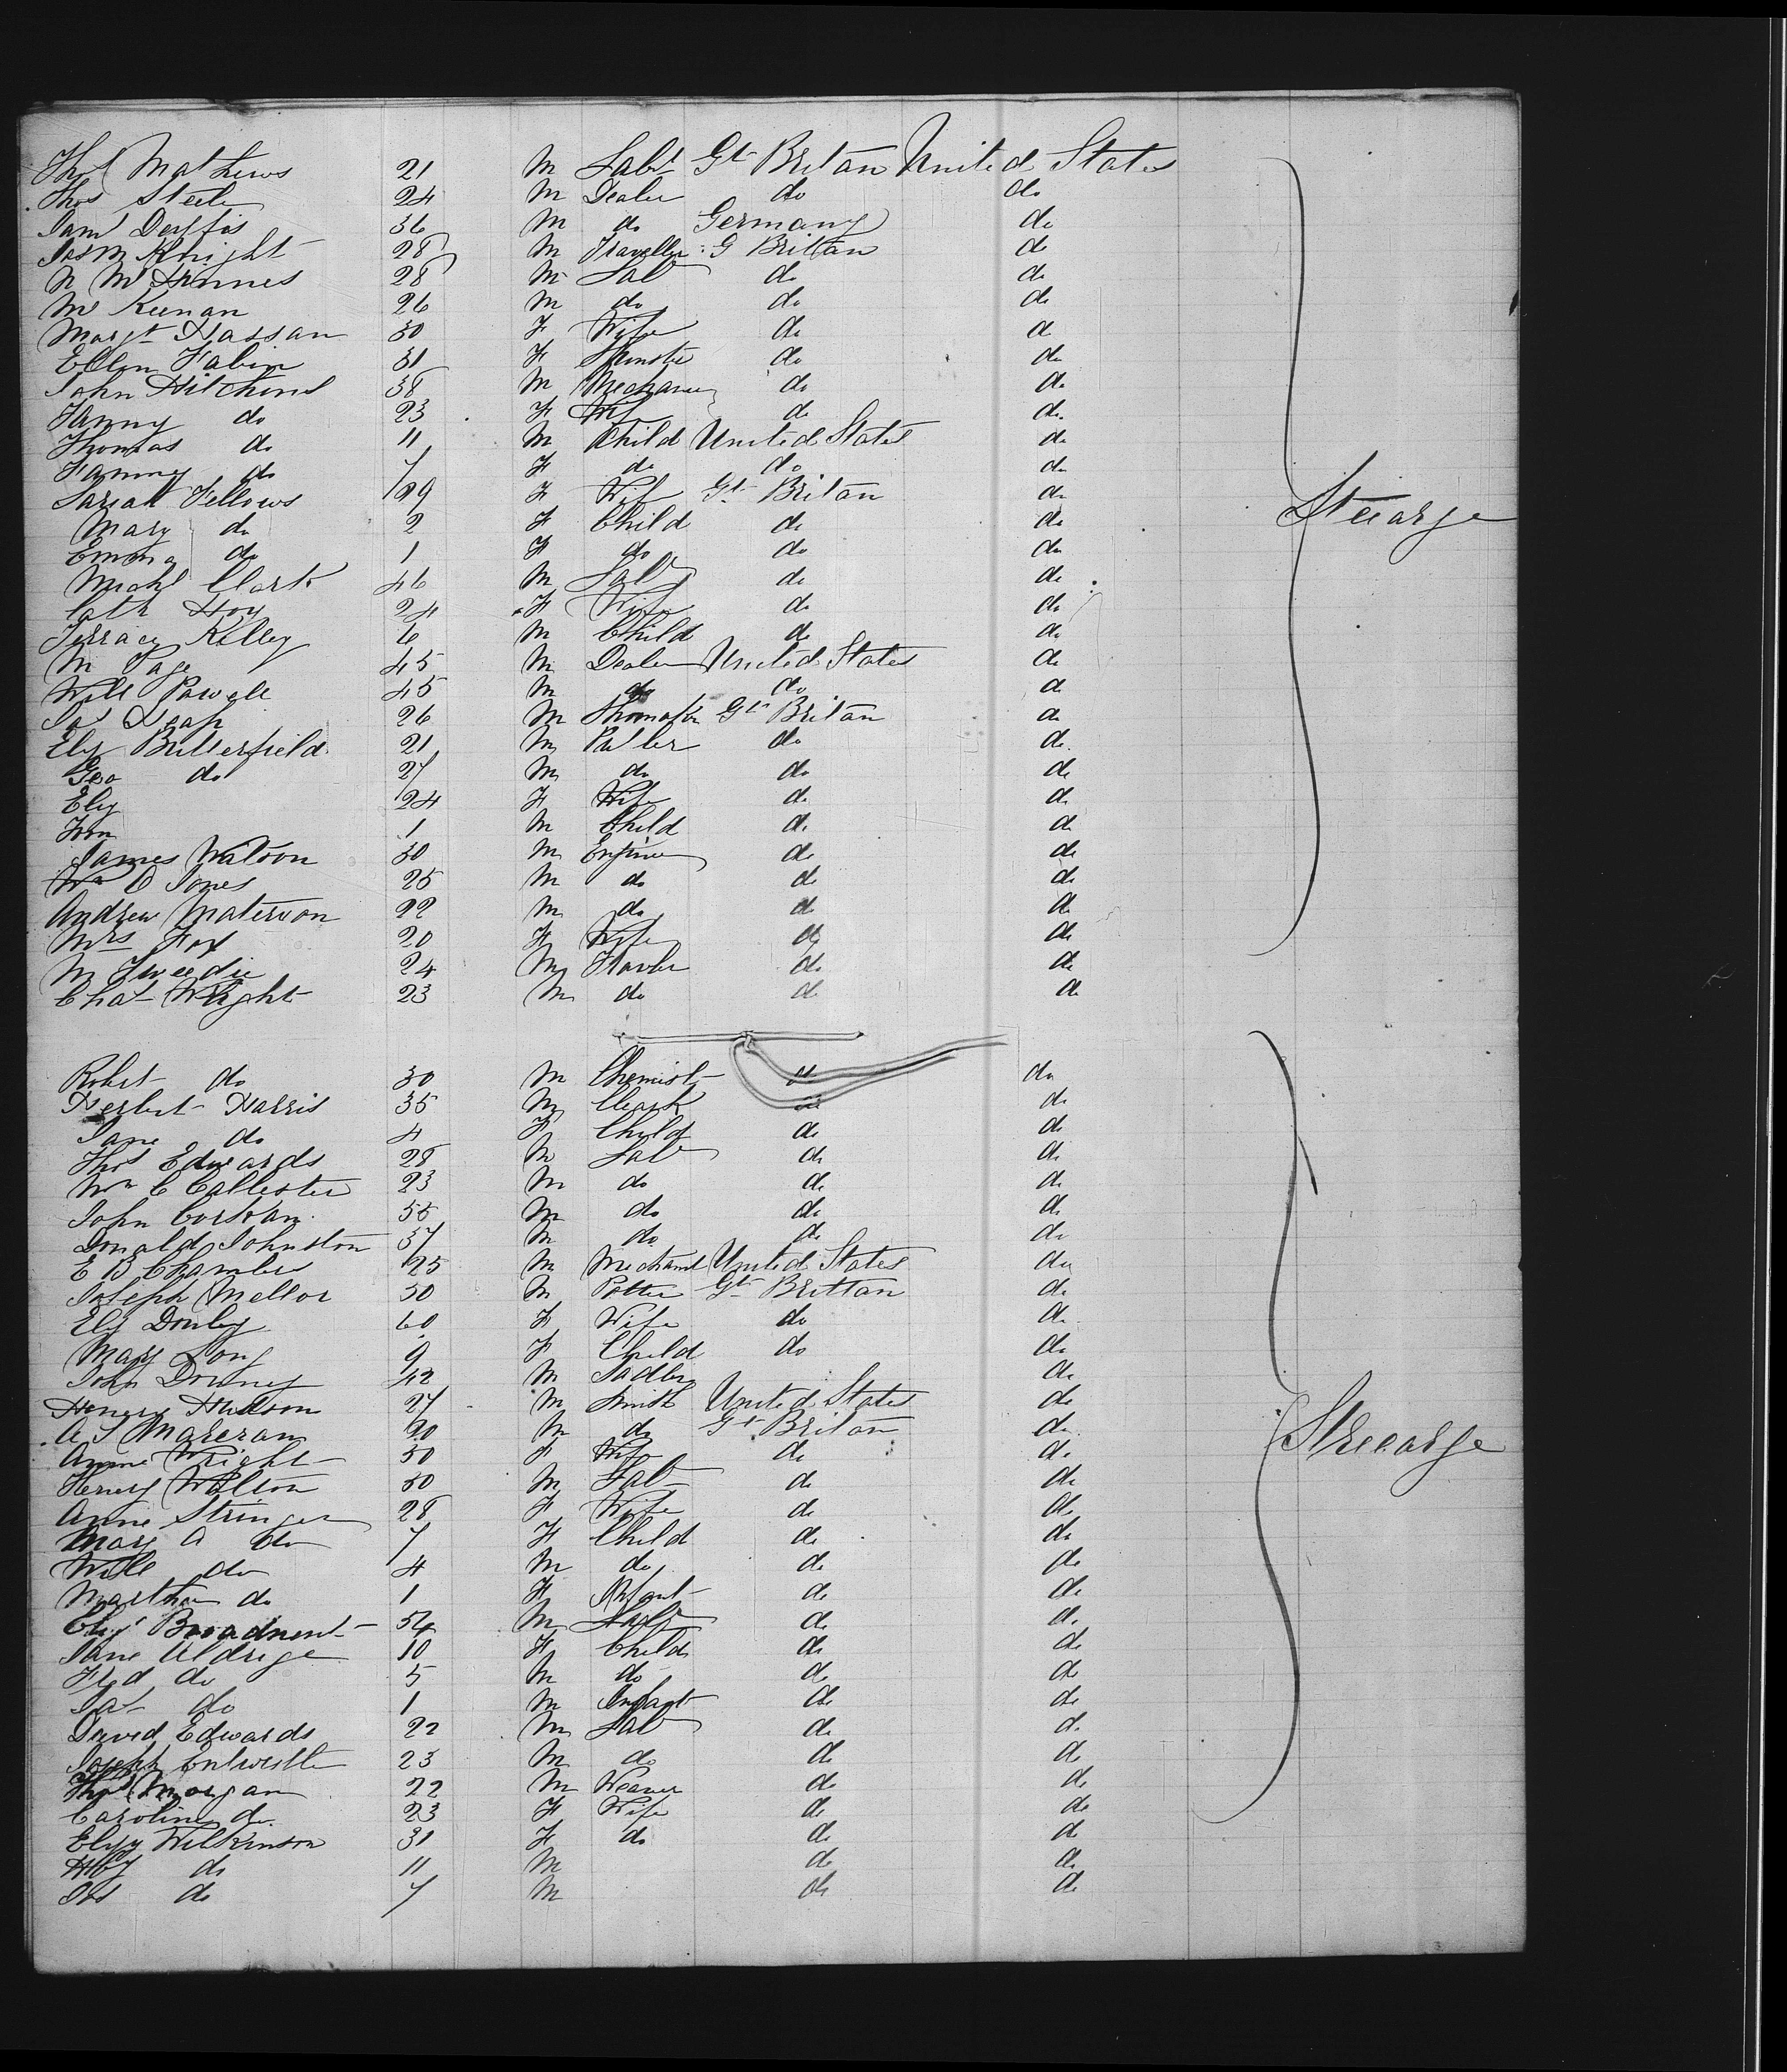 Thos Mathews 21 M Labr Gt Britan United States
Thos Steele 24 M Dealer do do
Saml 36 M do Germany do
Jas M Knight 28 M Traveller G Brittan do
N Mc 28 M Lab do do
Mc Keenan 26 M do do do
Margt Hassan 30 F Wife do do
Ellen Fabin 31 F do do
John Hitchins 38 M Mechanic do do
Fanny do 23 F Wife do do
Thomas do 11 M Child United States do
Fanny do 7 F do do do
Sariah Fellows 29 F Wife Gt Britan do
Steearge
Mary do 2 F Child do do
Emma do 1 F do do do
Michl Clark 46 M Lab do do
Cath Hoy 24 F Wife do do
Terrace Kelley 6 M Child do do
M Page 45 M Dealer United States do
Will Powell 45 M do do do
Jas Heap 26 M Gt Britan do
Eliz Butterfield 21 M do do
Geo do 27 M do do do
Eliz 24 F Wife do do
1 M Child do do
James Watson 30 M Engineer do do
Wm O Jones 25 M do do do
Andrew Materson 22 M do do do
Mrs Fox 20 F Wife do do
M Tweedie 24 M do do
Chas Wright 23 M do do do
Robert do 30 M Chemist do do
Herbert Harris 35 M Cleark do do
Jane do 4 F Child do do
Thos Edwards 28 M Lab do do
Wm C Callester 23 M do do do
John Corkan 55 M do do do
Donald Johnston 37 M do do do
E B Chambers 25 M Mechanic United States do
Joseph Mellor 50 M Potter Gt Brittan do
Eliz Donley 60 F Wife do do
Mary Long 9 F Child do do
John Downey 42 M Sadler do
Henery Hudson 27 M Smith United States do
A S 20 M do Gt Britan do
Streearge
Anne Wright 50 F Wife do do
Henery Wilson 50 M Lab do do
Anne Stringer 28 F Wife do do
Mary A do 7 F Child do do
Will do 4 M do do do
Martha do 1 F Infant do do
Broadnent M Lab do do
Jane Uldrige 10 F Child do do
Fred do 5 M do do do
Jas do 1 M Infant do do
David Edwards 22 M Lab do do
Joseph Entwestle 23 M do do do
Thos Morgan 22 M Weaver do do
Caroline do 23 F Wife do do
Elizy Wilkinson 31 F do do do
do 11 M do do
do 7 M do do